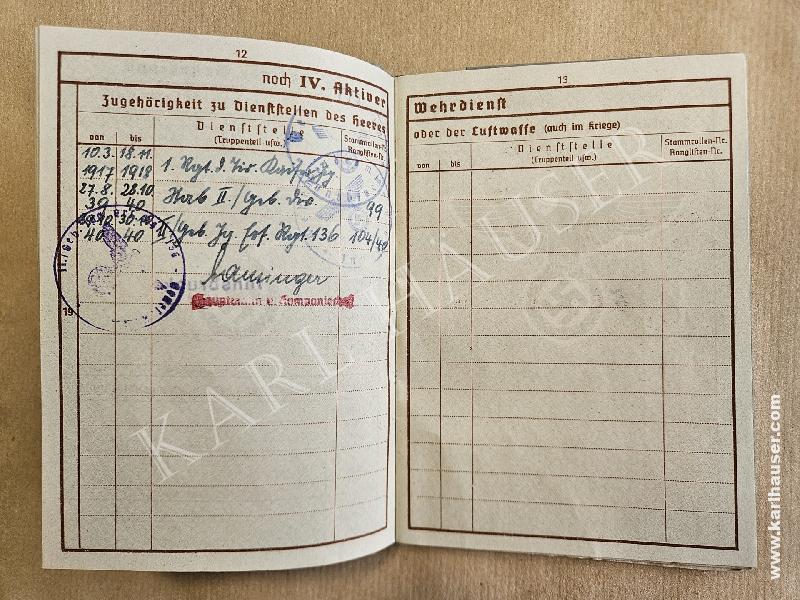 12
noch IV. Aktiver
Zugehörigkeit zu Dienststellen des Heeres
von bis
Dienststelle
(Truppenteil usw.)
Stammrollen-Nr.
Ranglisten-Nr.
10.3. 18.11.
1917 1918
1. Rgt. d. Tir.
27.8. 28.10.
39 40
Stab II./Geb. Div. 99
40 40
II/Geb. Jg. Ers. Rgt. 136 104/42
Hauptmann u. Kompaniechef
19
13
Wehrdienst
oder der Luftwaffe (auch im Kriege)
von bis
Dienststelle
(Truppenteil usw.)
Stammrollen-Nr.
Ranglisten-Nr.
KARL HÄUSER
www.karlhauser.com